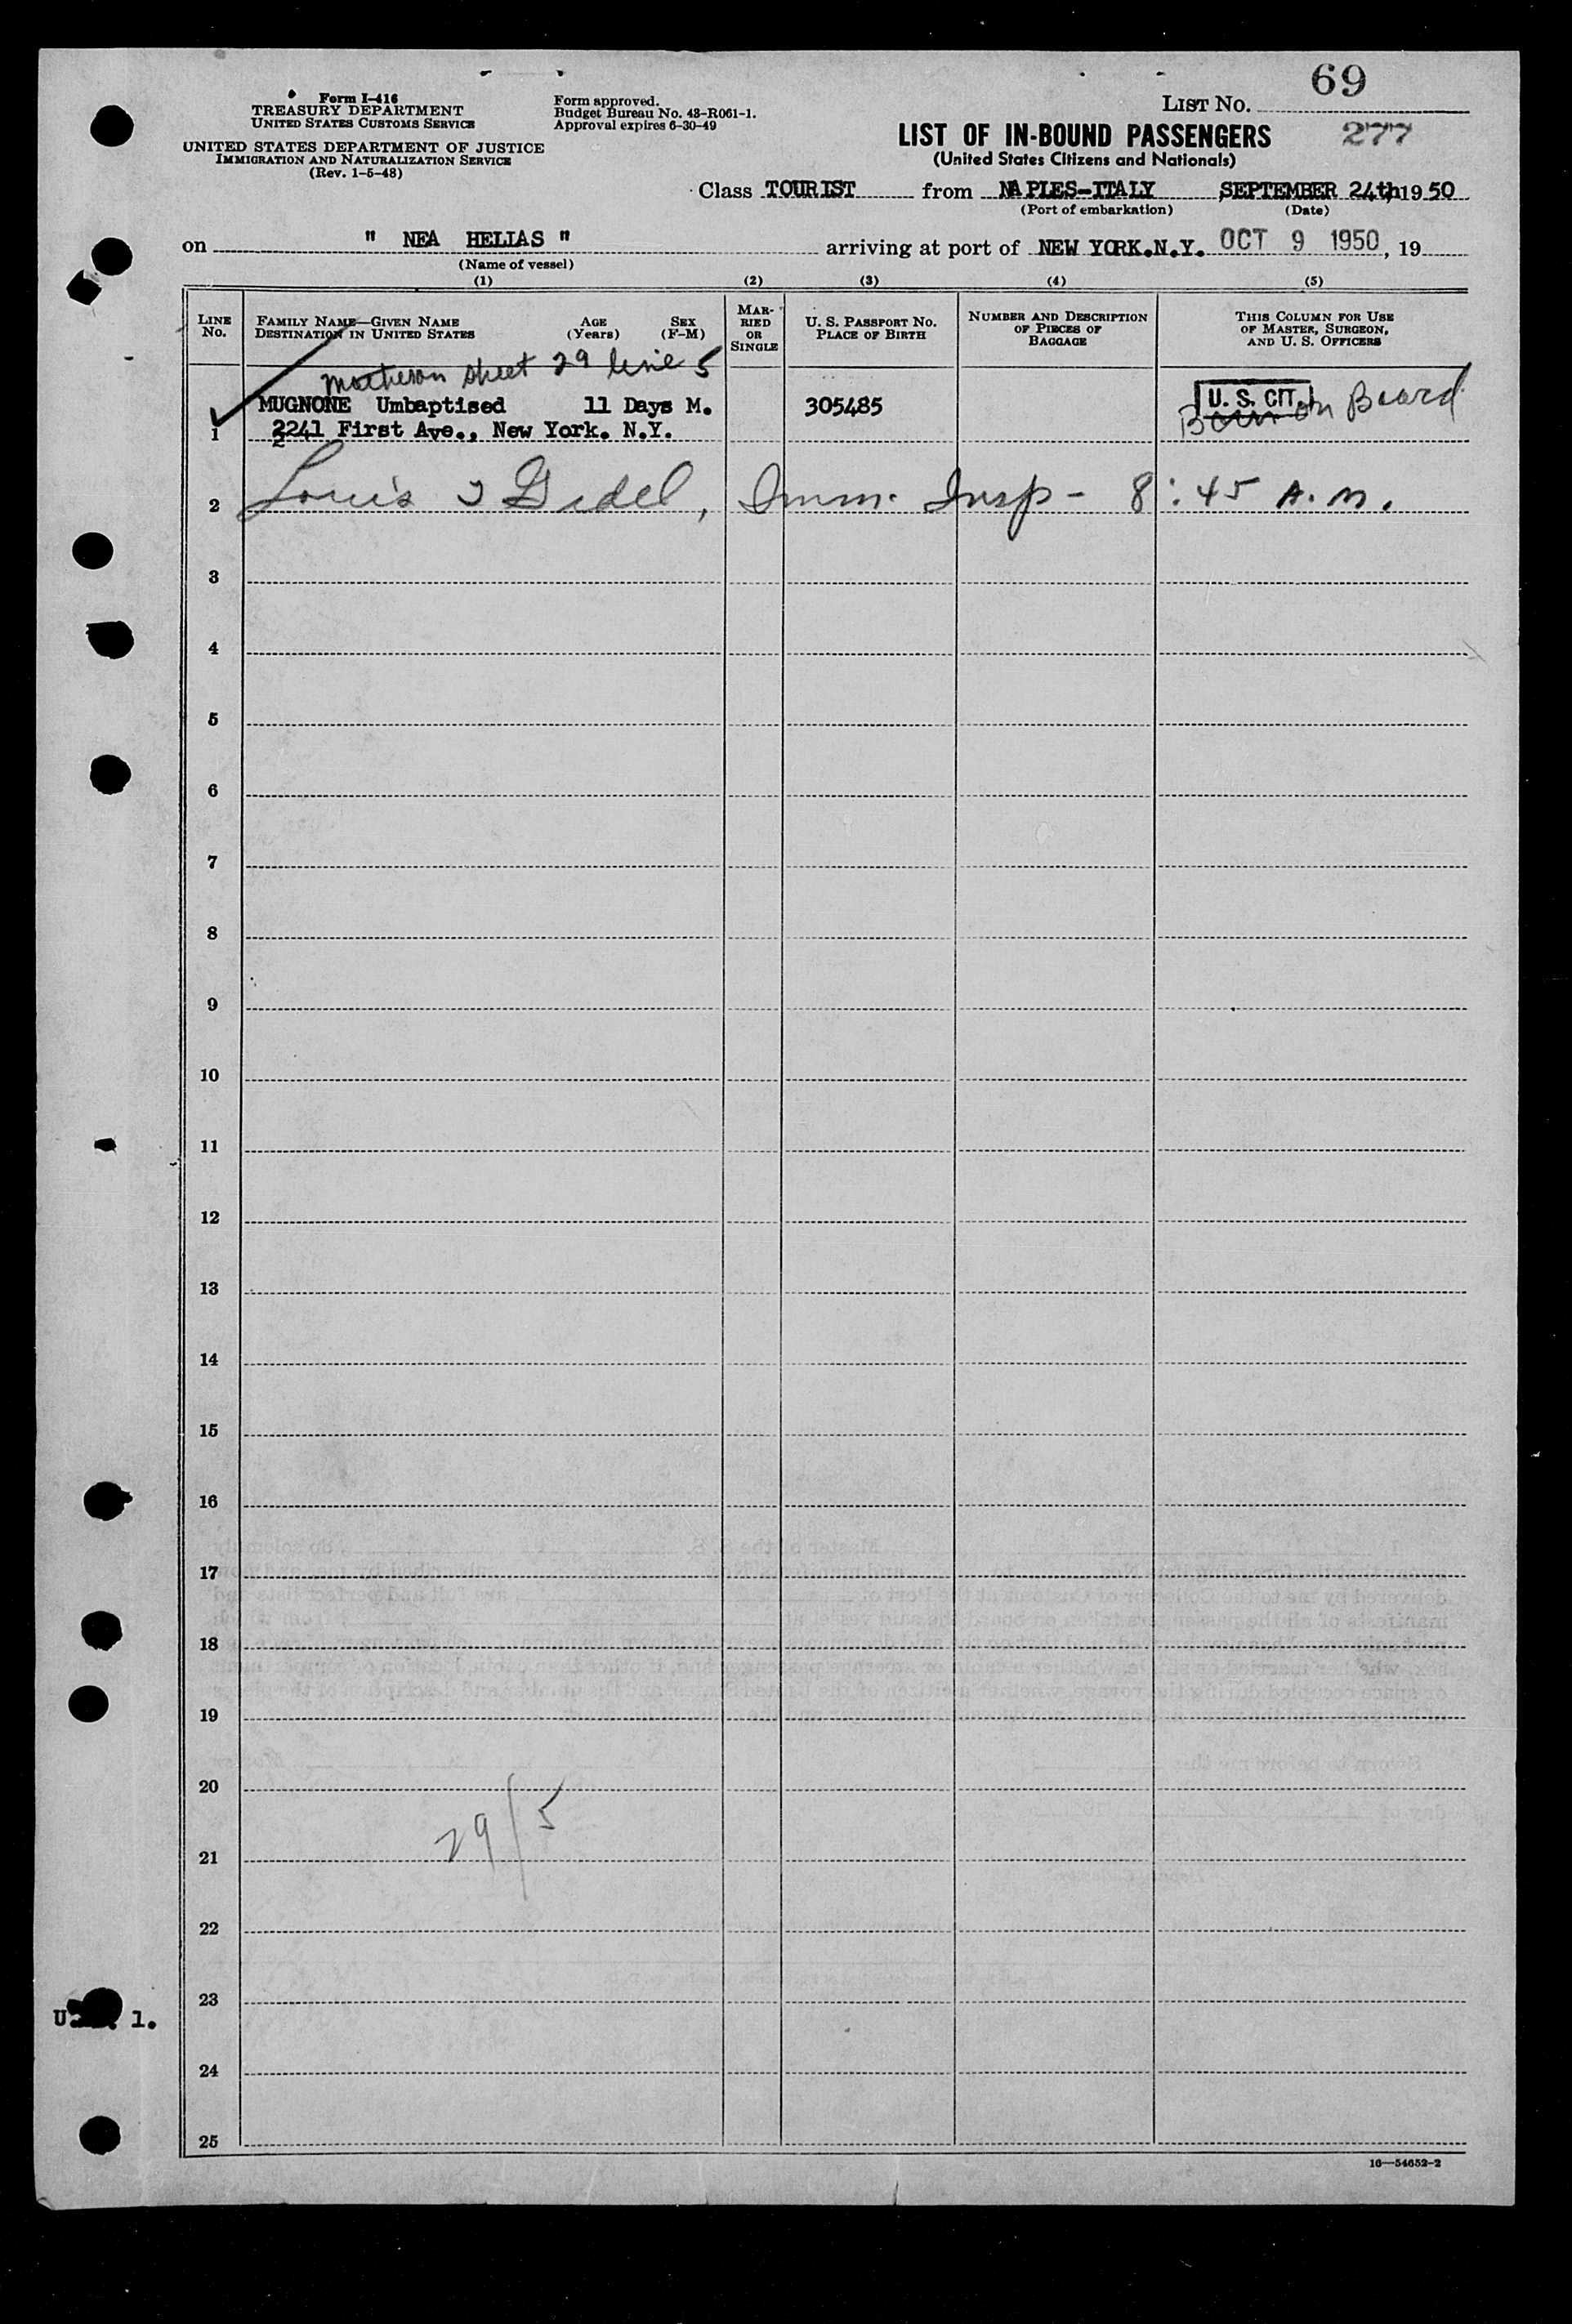 69
List No.
Form I-416
TREASURY DEPARTMENT
United States Customs Service
Form approved.
Budget Bureau No. 43-R061-1.
Approval expires 6-30-49
LIST OF IN-BOUND PASSENGERS
277
(United States Citizens and Nationals)
UNITED STATES DEPARTMENT OF JUSTICE
Immigration and Naturalization Service
(Rev. 1-5-48)
Class TOURIST from NAPLES-ITALY SEPTEMBER 24th, 1950
(Port of embarkation) (Date)
on " NEA HELIAS " arriving at port of NEW YORK.N.Y. OCT 9 1950, 19
(Name of vessel)
(1) (2) (3) (4) (5)
Line No. Family Name—Given Name Destination in United States Age (Years) Sex (F-M) Married or Single U. S. Passport No. Place of Birth Number and Description of Pieces of Baggage This Column for Use of Master, Surgeon, and U. S. Officers
sheet 29 line 5
MUGNONE Umbaptised 11 Days M. 305485 U. S. CIT. Born on Board
1 2241 First Ave., New York. N.Y.
2 Louis J Gidel, Imm. Insp - 8:45 A.M.
3
4
5
6
7
8
9
10
11
12
13
14
15
16
17
18
19
20
29/5
21
22
23
U 1.
24
25
16—54652-2